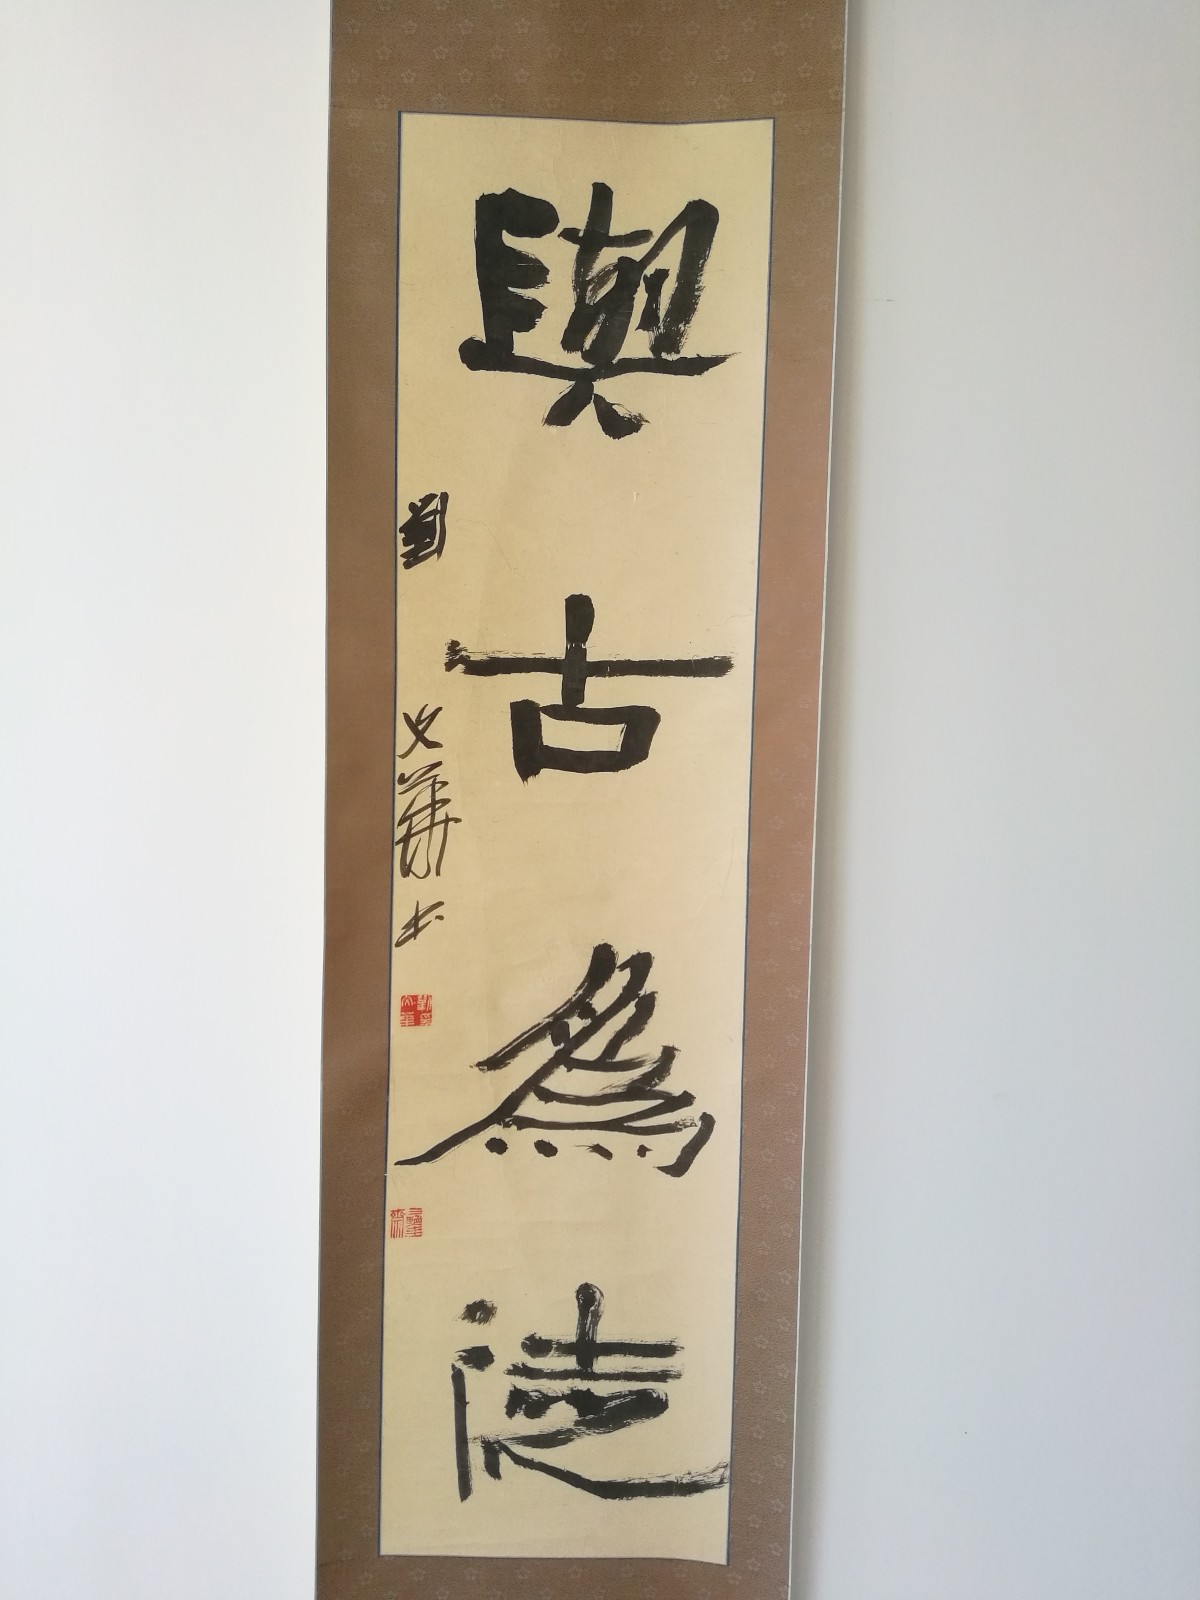 與古為徒
劉文華书